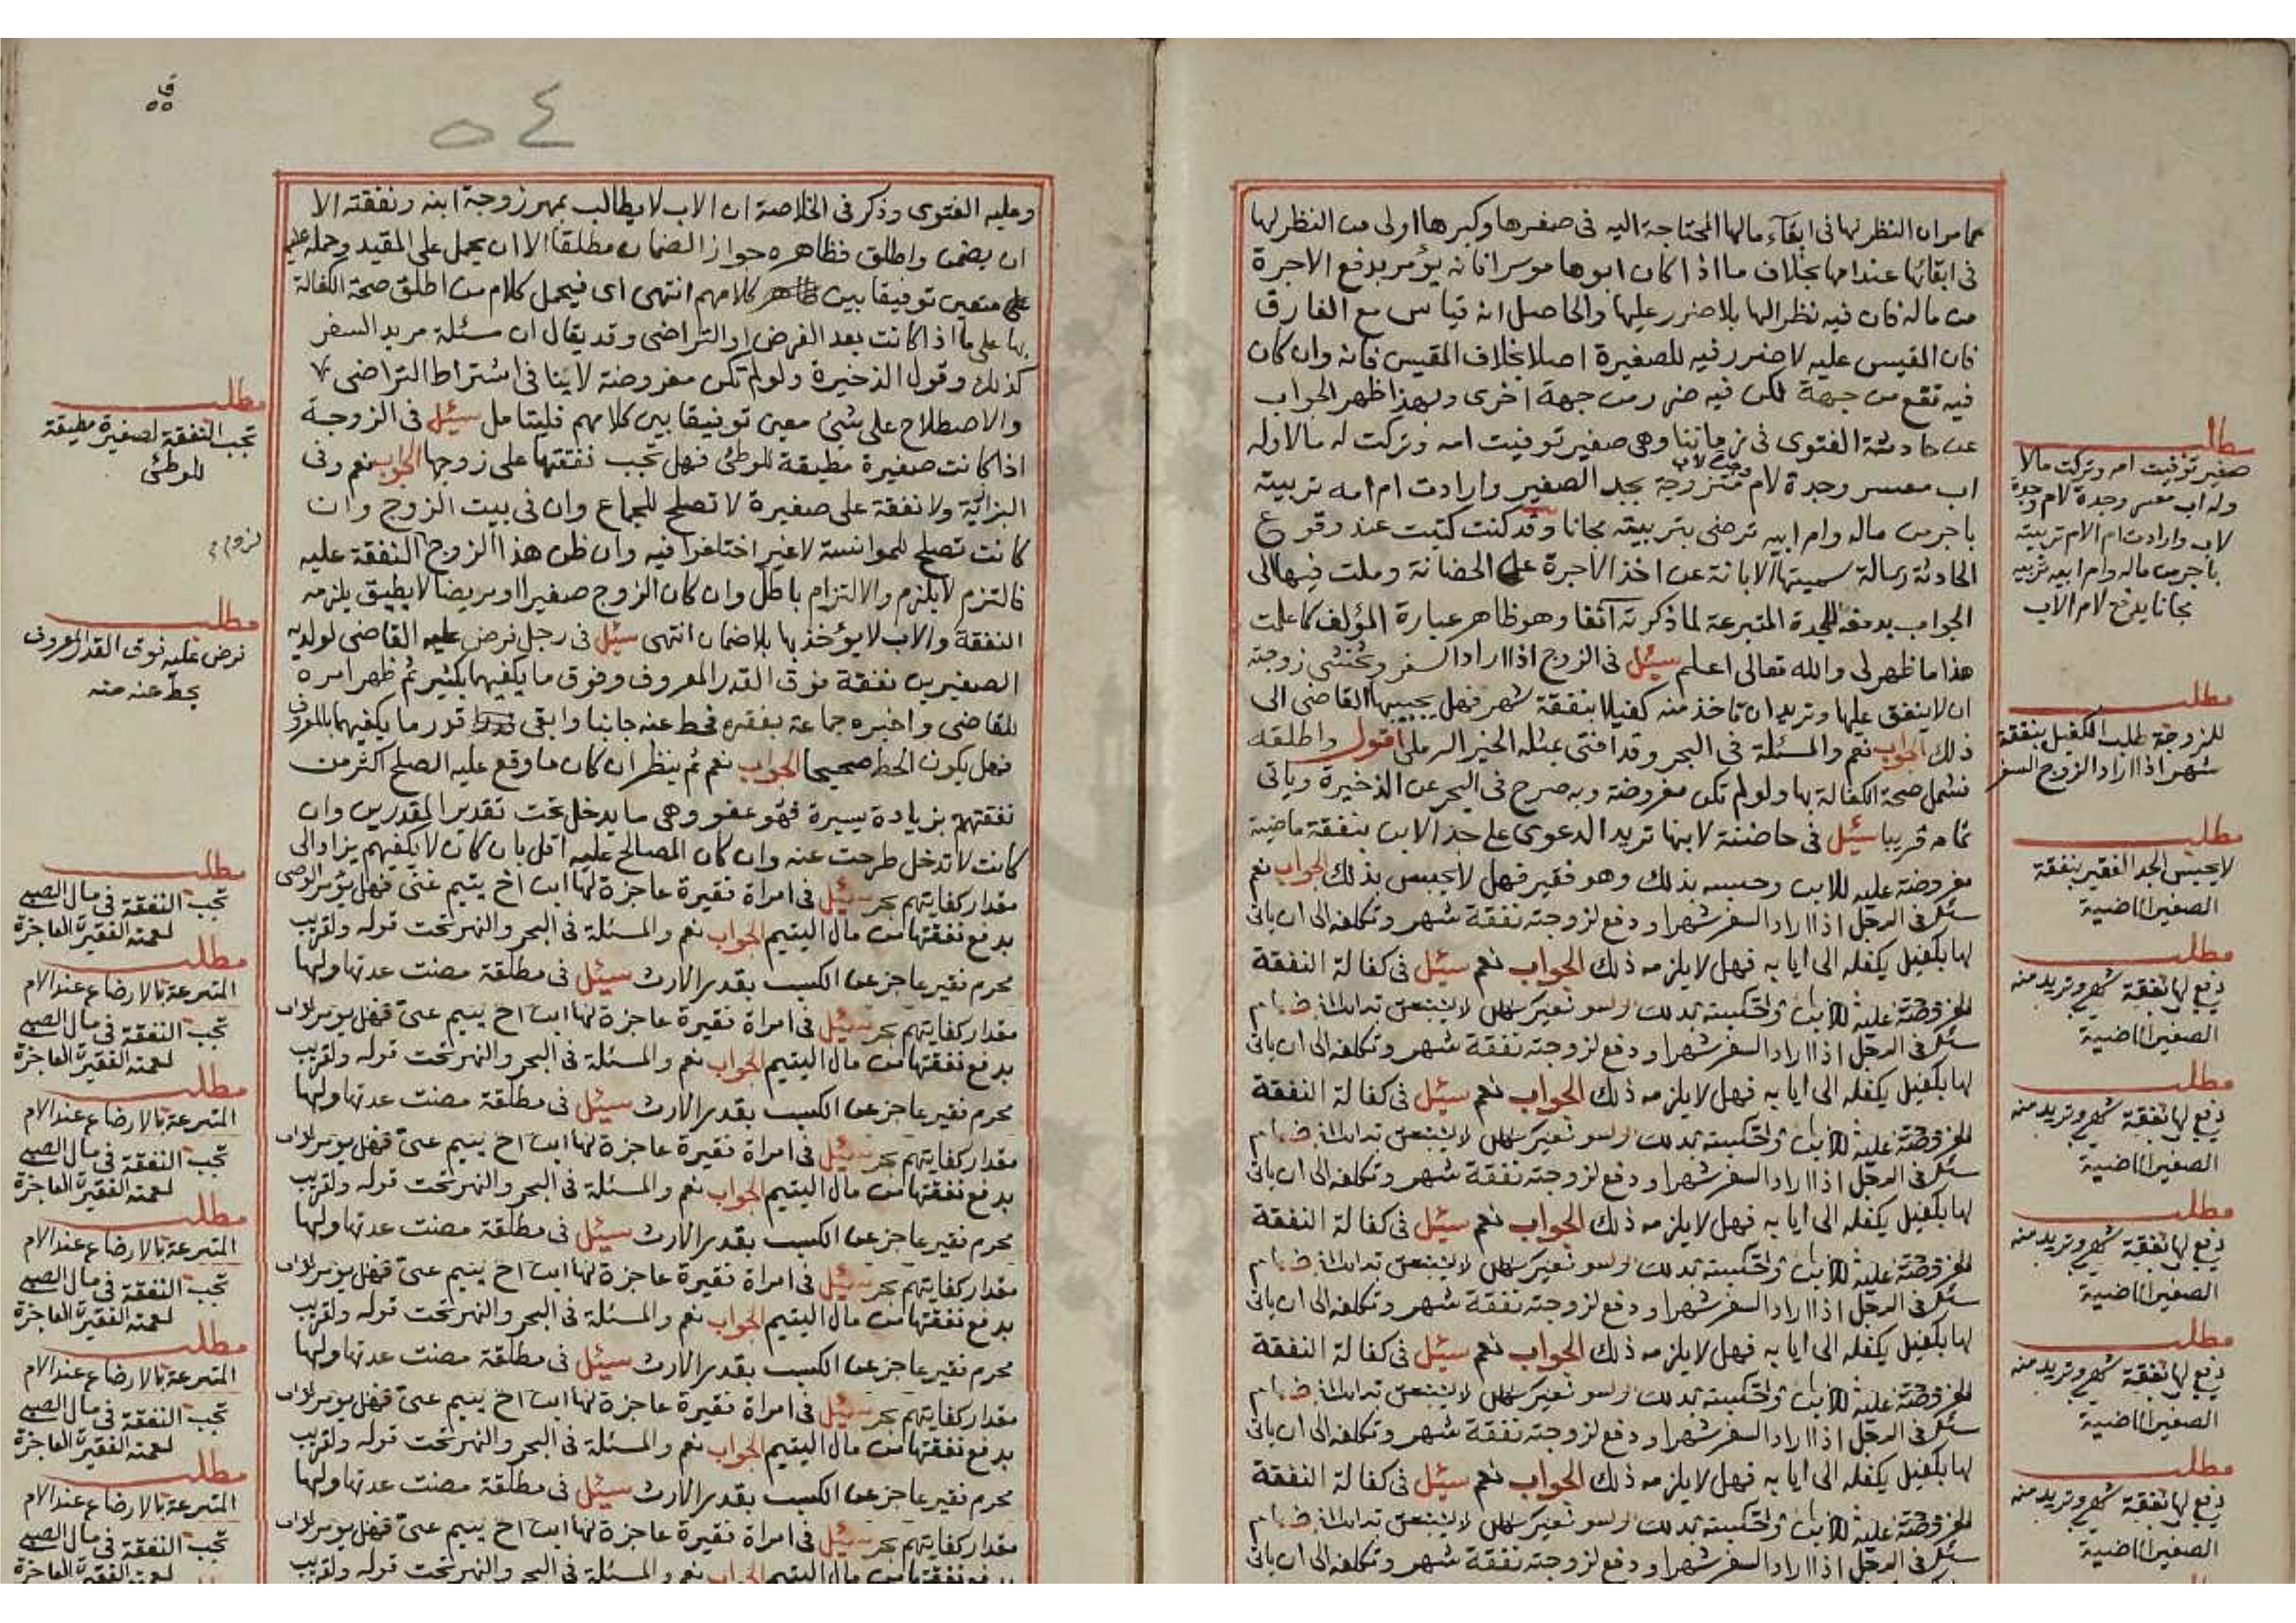 مما مر ان النظر لها فى ابقاء مالها المحتاجة اليه فى صغرها وكبرها اولى من النظر لها
فى ابقائها عند امها بخلاف ما اذا كان ابوها موسرا فانه يؤمر بدفع الاجرة
من ماله فان فيه نظرا لها بلا ضرر عليها والحاصل انه قياس مع الفارق
فان المقيس عليه لا ضرر فيه للصغيرة اصلا بخلاف المقيس فانه وان كان
فيه نفع من جهة لكن فيه ضرر من جهة اخرى وبهذا ظهر الجواب
عن حادثة الفتوى فى زماننا وهى صغير توفيت امه وتركت له مالا وله
اب معسر وجدة لام وجدة لاب متزوجة بجد الصغير وارادت ام امه تربيته
باجر من ماله وام ابيه ترضى بتربيته مجانا وقد كنت كتبت عند وقوع
الحادثة رسالة سميتها الابانة عن اخذ الاجرة على الحضانة وملت فيها الى
الجواب بدفعه للجدة المتبرعة لما ذكرته آنفا وهو ظاهر عبارة المؤلف كما علمت
هذا ما ظهر لى والله تعالى اعلم سئل فى الزوج اذا اراد السفر وتخشى زوجته
ان لا ينفق عليها وتريد ان تاخذ منه كفيلا بنفقة شهر فهل يجيبها القاضى الى
ذلك الجواب نعم والمسئلة فى البحر وقد افتى بمثله الخير الرملى اقول واطلقه
فشمل صحة الكفالة بها ولو لم تكن مفروضة وبه صرح فى البحر عن الذخيرة وياتى
تمامه قريبا سئل فى حاضنة لابنها تريد الدعوى على جد الابن بنفقة ماضية
مفروضة عليه للابن وحبسه بذلك وهو فقير فهل لا يحبس بذلك الجواب نعم
سئل فى الرجل اذا اراد السفر شهرا ودفع لزوجته نفقة شهر وتكلفه الى ان ياتى
لها بكفيل يكفله الى ايابه فهل لا يلزمه ذلك الجواب نعم سئل فى كفالة النفقة
سئل فى الرجل اذا اراد السفر شهرا ودفع لزوجته نفقة شهر وتكلفه الى ان ياتى
لها بكفيل يكفله الى ايابه فهل لا يلزمه ذلك الجواب نعم سئل فى كفالة النفقة
سئل فى الرجل اذا اراد السفر شهرا ودفع لزوجته نفقة شهر وتكلفه الى ان ياتى
لها بكفيل يكفله الى ايابه فهل لا يلزمه ذلك الجواب نعم سئل فى كفالة النفقة
سئل فى الرجل اذا اراد السفر شهرا ودفع لزوجته نفقة شهر وتكلفه الى ان ياتى
لها بكفيل يكفله الى ايابه فهل لا يلزمه ذلك الجواب نعم سئل فى كفالة النفقة
سئل فى الرجل اذا اراد السفر شهرا ودفع لزوجته نفقة شهر وتكلفه الى ان ياتى
لها بكفيل يكفله الى ايابه فهل لا يلزمه ذلك الجواب نعم سئل فى كفالة النفقة
سئل فى الرجل اذا اراد السفر شهرا ودفع لزوجته نفقة شهر وتكلفه الى ان ياتى
مطلب
صغير توفيت امه وتركت مالا
وله اب معسر وجدة لام وجدة
لاب وارادت ام الام تربيته
باجر من ماله وام ابيه تربيه
مجانا يدفع لام الاب
مطلب
للزوجة طلب الكفيل بنفقة
شهر اذا اراد الزوج السفر
مطلب
لا يحبس الجد الفقير بنفقة
الصغير الماضية
مطلب
دفع لها نفقة شهر وتريد منه
الصغير الماضية
مطلب
دفع لها نفقة شهر وتريد منه
الصغير الماضية
مطلب
دفع لها نفقة شهر وتريد منه
الصغير الماضية
مطلب
دفع لها نفقة شهر وتريد منه
الصغير الماضية
مطلب
دفع لها نفقة شهر وتريد منه
الصغير الماضية
٥٤
وعليه الفتوى وذكر فى الخلاصة ان الاب لا يطالب بمهر زوجة ابنه ونفقته الا
ان يضمن واطلق فظاهره جواز الضمان مطلقا الا ان يحمل على المقيد وحمله عليه
متعين توفيقا بين كلامهم انتهى اى فيحمل كلام من اطلق صحة الكفالة
بها على ما اذا كانت بعد الفرض او التراضى وقد يقال ان مسئلة مريد السفر
كذلك وقول الذخيرة ولو لم تكن مفروضة لا ينافى اشتراط التراضى
والاصطلاح على شئ معين توفيقا بين كلامهم فليتامل سئل فى الزوجة
اذا كانت صغيرة مطيقة للوطئ فهل تجب نفقتها على زوجها الجواب نعم وفى
البزازية ولا نفقة على صغيرة لا تصلح للجماع وان فى بيت الزوج وان
كانت تصلح للموانسة لا غير اختلفوا فيه وان ظن هذا الزوج النفقة عليه
فالتزم لا يلزم والالتزام باطل وان كان الزوج صغيرا او مريضا لا يطيق يلزمه
النفقة والاب لا يؤخذ بها بلا ضمان انتهى سئل فى رجل فرض عليه القاضى لولديه
الصغيرين نفقة فوق القدر المعروف وفوق ما يكفيهما بكثير ثم ظهر امره
للقاضى واخبره جماعة بفقره فحط عنه جانبا وابقى قدر ما يكفيهما بالمعروف
فهل يكون الحط صحيحا الجواب نعم ثم ينظر ان كان ما وقع عليه الصلح اكثر من
نفقتهم بزيادة يسيرة فهو عفو وهى ما يدخل تحت تقدير المقدرين وان
كانت لا تدخل طرحت عنه وان كان المصالح عليه اقل بان كان لا يكفيهم يزاد الى
مقدار كفايتهم بحر سئل فى امراة فقيرة عاجزة لها ابن اخ يتيم غنى فهل يؤمر الوصى
بدفع نفقتها من مال اليتيم الجواب نعم والمسئلة فى البحر والنهر تحت قوله ولقريب
محرم فقير عاجز عن الكسب بقدر الارث سئل فى مطلقة مضت عدتها ولها
مقدار كفايتهم بحر سئل فى امراة فقيرة عاجزة لها ابن اخ يتيم غنى فهل يؤمر
بدفع نفقتها من مال اليتيم الجواب نعم والمسئلة فى البحر والنهر تحت قوله ولقريب
محرم فقير عاجز عن الكسب بقدر الارث سئل فى مطلقة مضت عدتها ولها
مقدار كفايتهم بحر سئل فى امراة فقيرة عاجزة لها ابن اخ يتيم غنى فهل يؤمر
بدفع نفقتها من مال اليتيم الجواب نعم والمسئلة فى البحر والنهر تحت قوله ولقريب
محرم فقير عاجز عن الكسب بقدر الارث سئل فى مطلقة مضت عدتها ولها
مقدار كفايتهم بحر سئل فى امراة فقيرة عاجزة لها ابن اخ يتيم غنى فهل يؤمر
بدفع نفقتها من مال اليتيم الجواب نعم والمسئلة فى البحر والنهر تحت قوله ولقريب
محرم فقير عاجز عن الكسب بقدر الارث سئل فى مطلقة مضت عدتها ولها
مقدار كفايتهم بحر سئل فى امراة فقيرة عاجزة لها ابن اخ يتيم غنى فهل يؤمر
بدفع نفقتها من مال اليتيم الجواب نعم والمسئلة فى البحر والنهر تحت قوله ولقريب
محرم فقير عاجز عن الكسب بقدر الارث سئل فى مطلقة مضت عدتها ولها
مقدار كفايتهم بحر سئل فى امراة فقيرة عاجزة لها ابن اخ يتيم غنى فهل يؤمر
بدفع نفقتها من مال اليتيم الجواب نعم والمسئلة فى البحر والنهر تحت قوله ولقريب
مطلب
تجب النفقة لصغيرة مطيقة
للوطئ
مطلب
فرض عليه فوق القدر المعروف
يحط عنه منه
مطلب
تجب النفقة فى مال الصبى
لعمته الفقيرة العاجزة
مطلب
المتبرعة بالارضاع عند الام
تجب النفقة فى مال الصبى
لعمته الفقيرة العاجزة
مطلب
المتبرعة بالارضاع عند الام
تجب النفقة فى مال الصبى
لعمته الفقيرة العاجزة
مطلب
المتبرعة بالارضاع عند الام
تجب النفقة فى مال الصبى
لعمته الفقيرة العاجزة
مطلب
المتبرعة بالارضاع عند الام
تجب النفقة فى مال الصبى
لعمته الفقيرة العاجزة
مطلب
المتبرعة بالارضاع عند الام
تجب النفقة فى مال الصبى
لعمته الفقيرة العاجزة